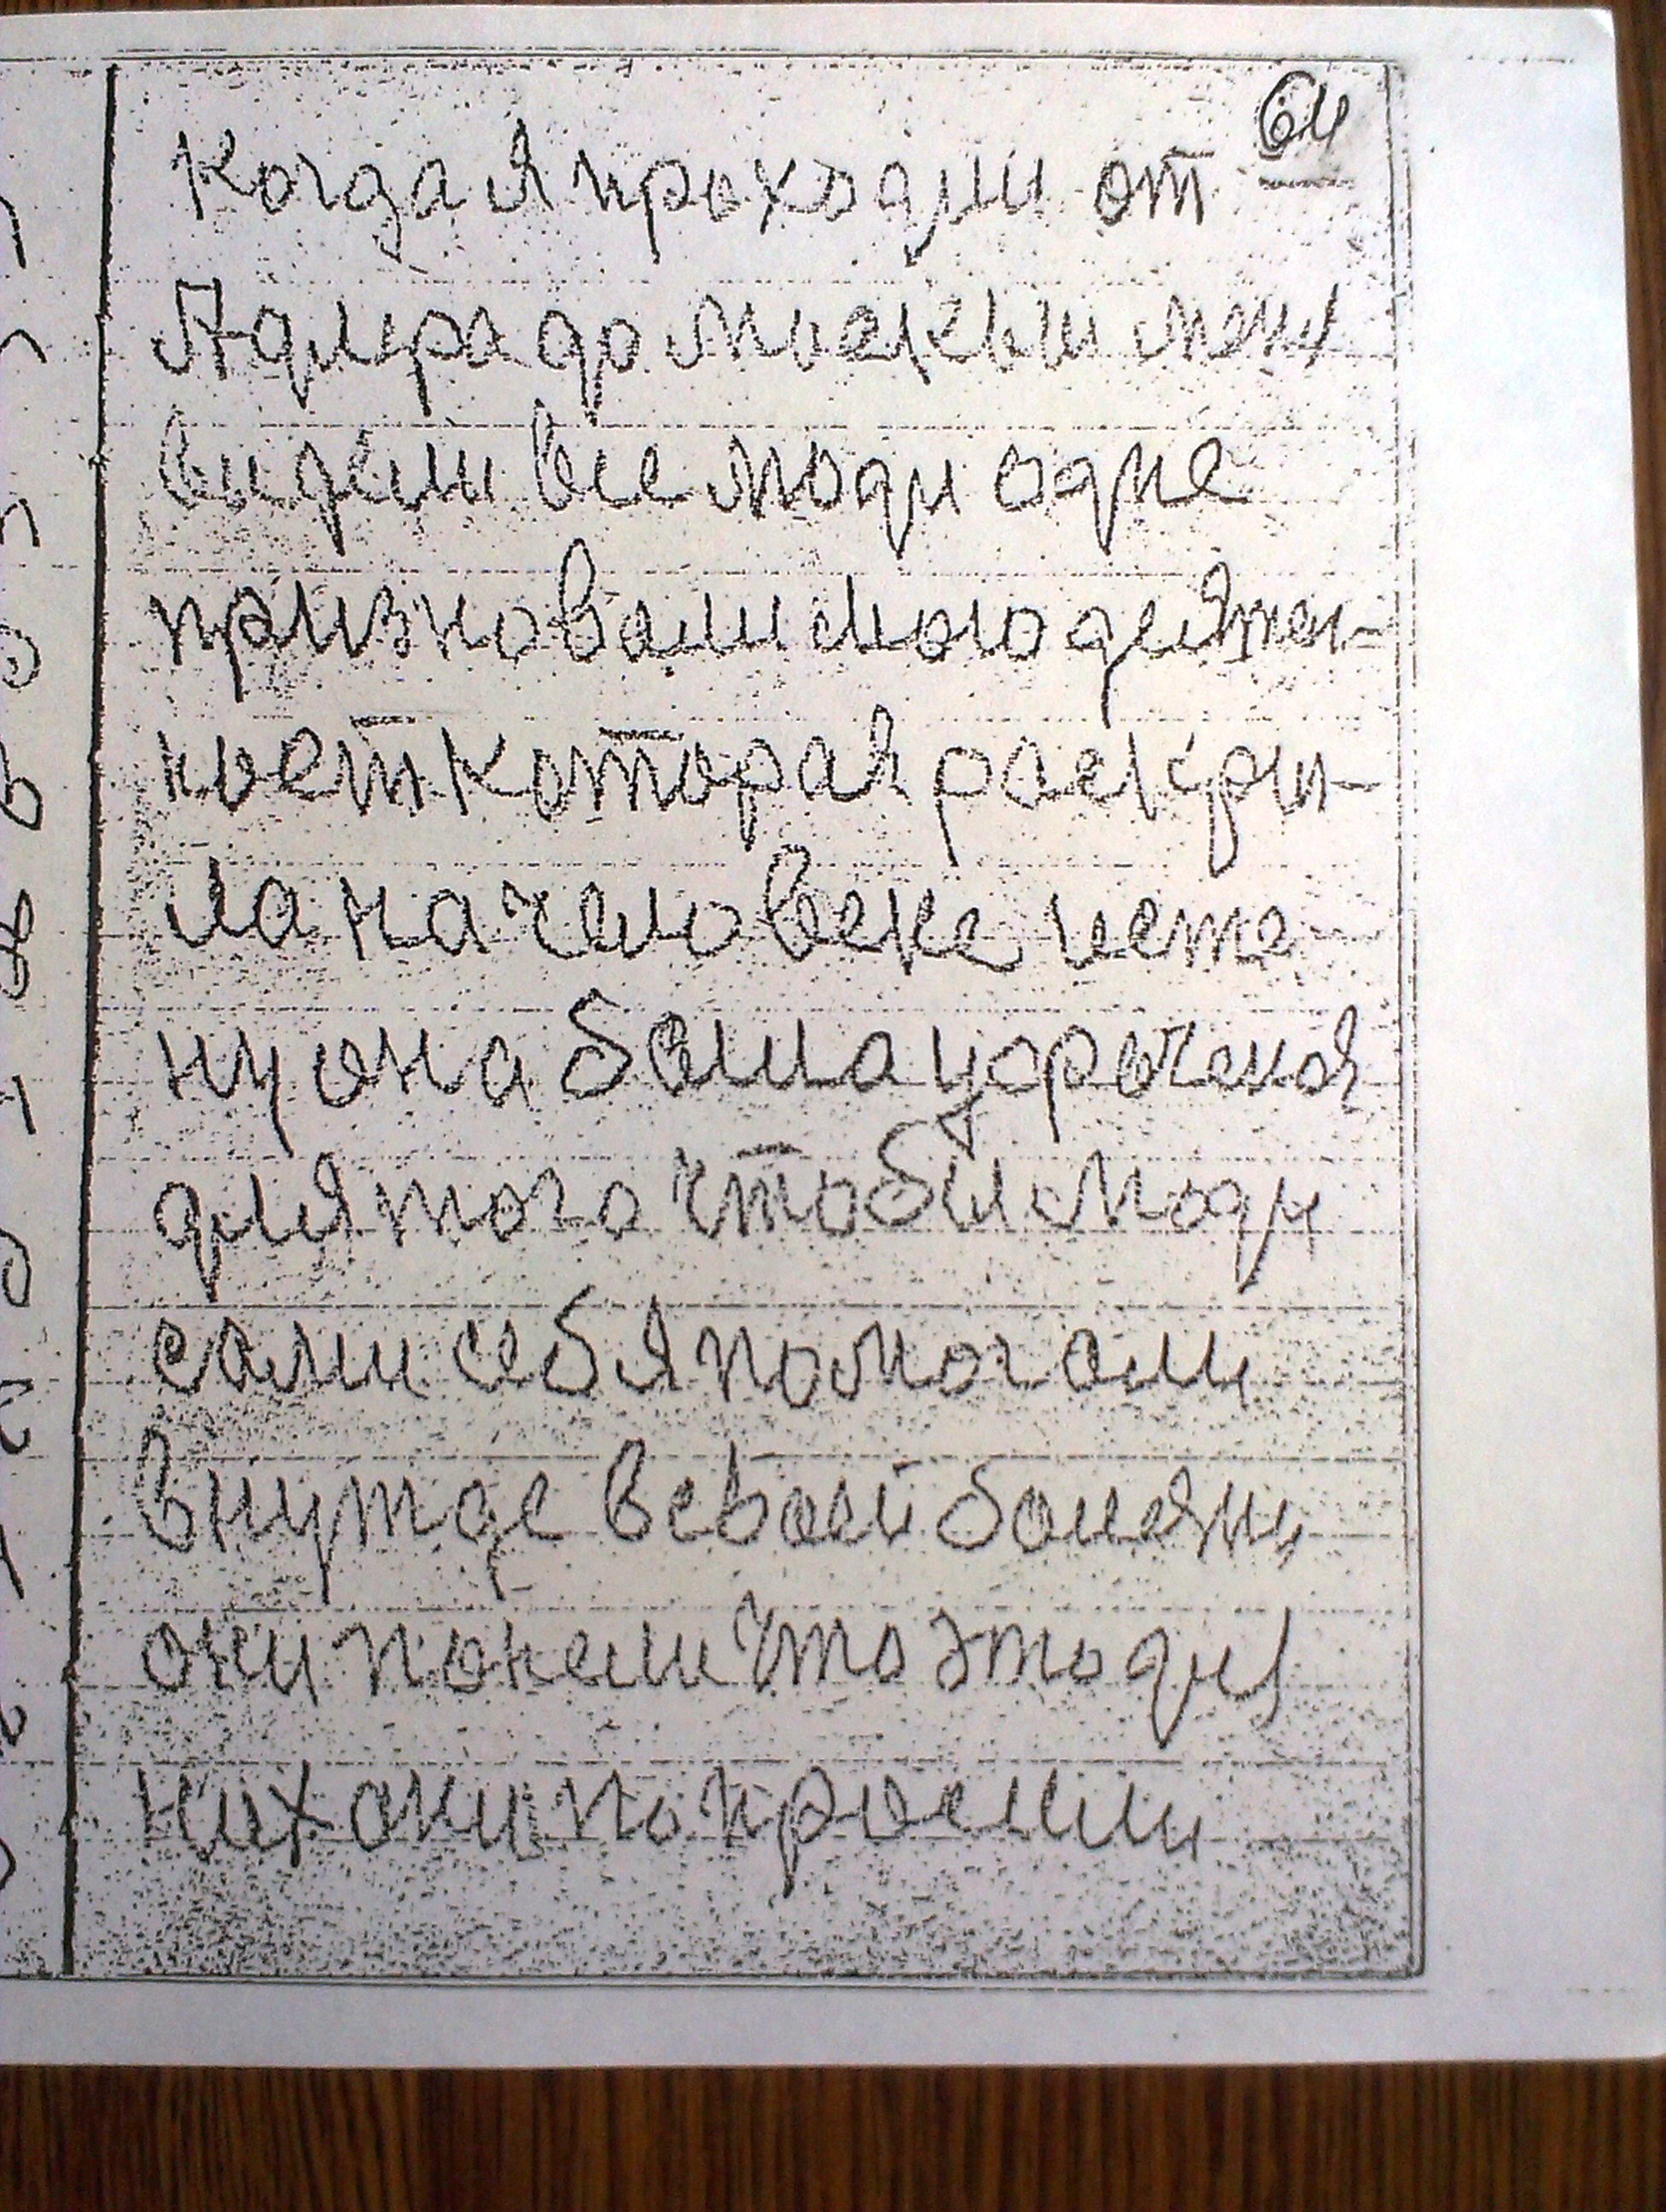 64
Когда я проходил от
Адлера до москвы меня
видели все люди одне
призновали мою деятел-
ност которая роскры-
ла на человеке исте-
ну она была уороченая
для того чтобы люди
сами себя помогали
внутре в своей болезни
они поняли что это для
них они попросили